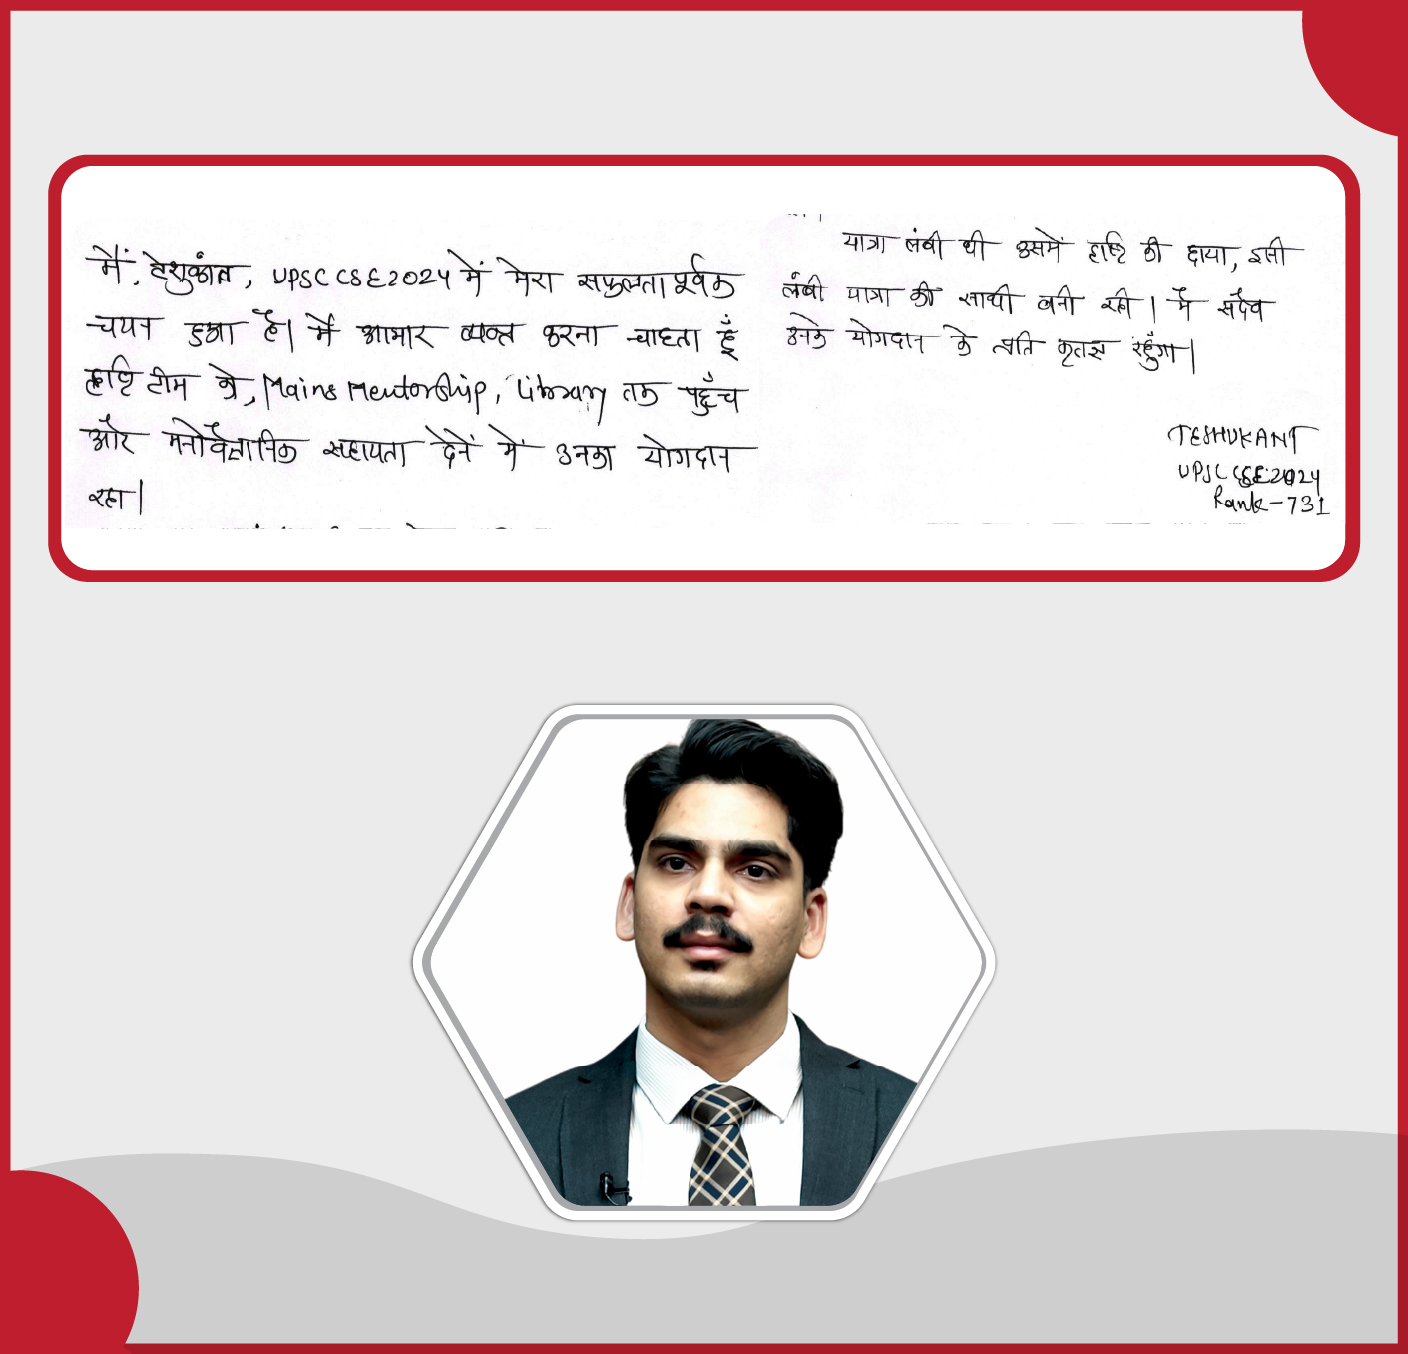 मैं, तेशुकांत, UPSC CSE 2024 में मेरा सफलतापूर्वक
चयन हुआ है। मैं आभार व्यक्त करना चाहता हूँ
दृष्टि टीम को, Mains Mentorship, Library तक पहुँच
और मनोवैज्ञानिक सहायता देनें में उनका योगदान
रहा।
यात्रा लंबी थी उसमें दृष्टि की छाया, इसी
लंबी यात्रा की साथी बनी रही। मैं सदैव
उनके योगदान के प्रति कृतज्ञ रहुँगा।
TESHUKANT
UPSC CSE 2024
Rank-731